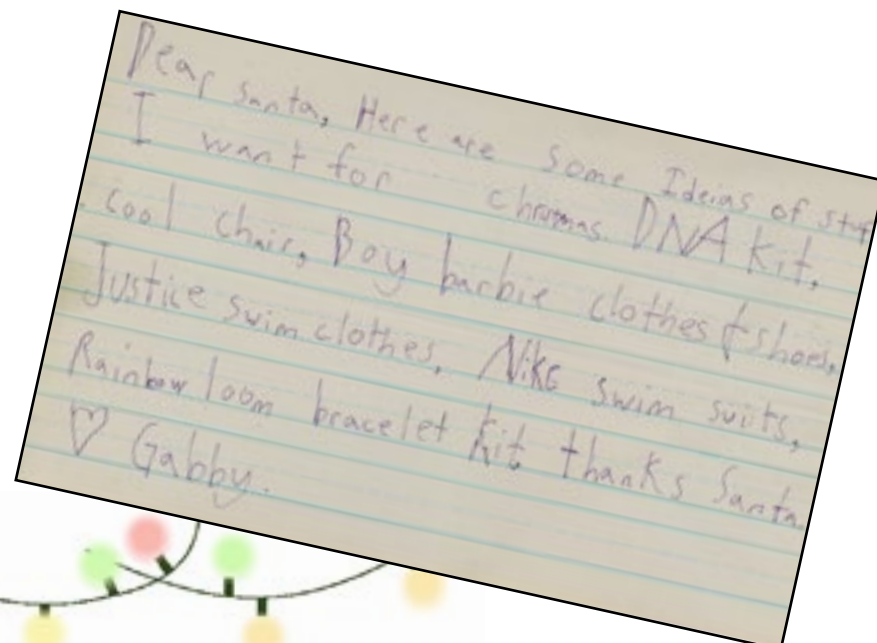 Dear Santa, Here are some Ideias of stuf
I want for chrismas. DNA kit,
cool chair, Boy barbie clothes & shoes,
Justice swim clothes, Nike swim suits,
Rainbow loom bracelet kit thanks Santa
♡ Gabby.